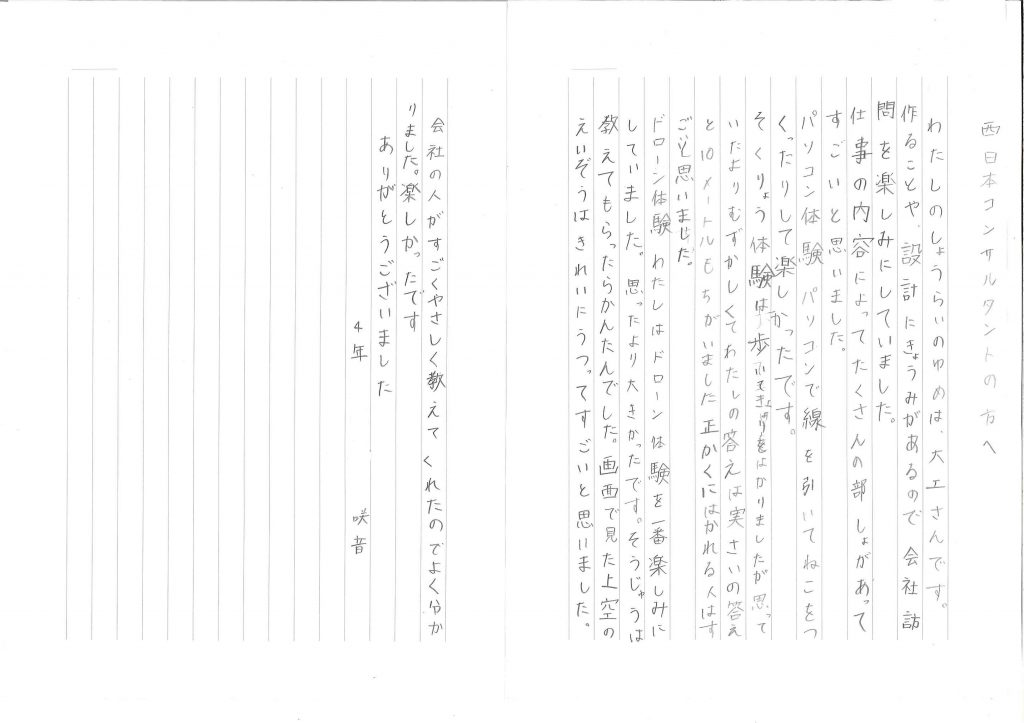 西日本コンサルタントの方へ
わたしのしょうらいのゆめは、大工さんです。
作ることや、設計にきょうみがあるので会社訪
問を楽しみにしていました。
仕事の内容によってたくさんの部しょがあって
すごいと思いました。
パソコン体験 パソコンで線を引いてねこをつ
くったりして楽しかったです。
そくりょう体験は歩いてきょりをはかりましたが思って
いたよりむずかしくてわたしの答えは実さいの答え
と10メートルもちがいました正かくにはかれる人はす
ごいと思いました。
ドローン体験 わたしはドローン体験を一番楽しみに
していました。思ったより大きかったです。そうじゅうは
教えてもらったらかんたんでした。画面で見た上空の
えいぞうはきれいにうつってすごいと思いました。
会社の人がすごくやさしく教えてくれたのでよく分か
りました。楽しかったです
ありがとうございました
4年 咲音